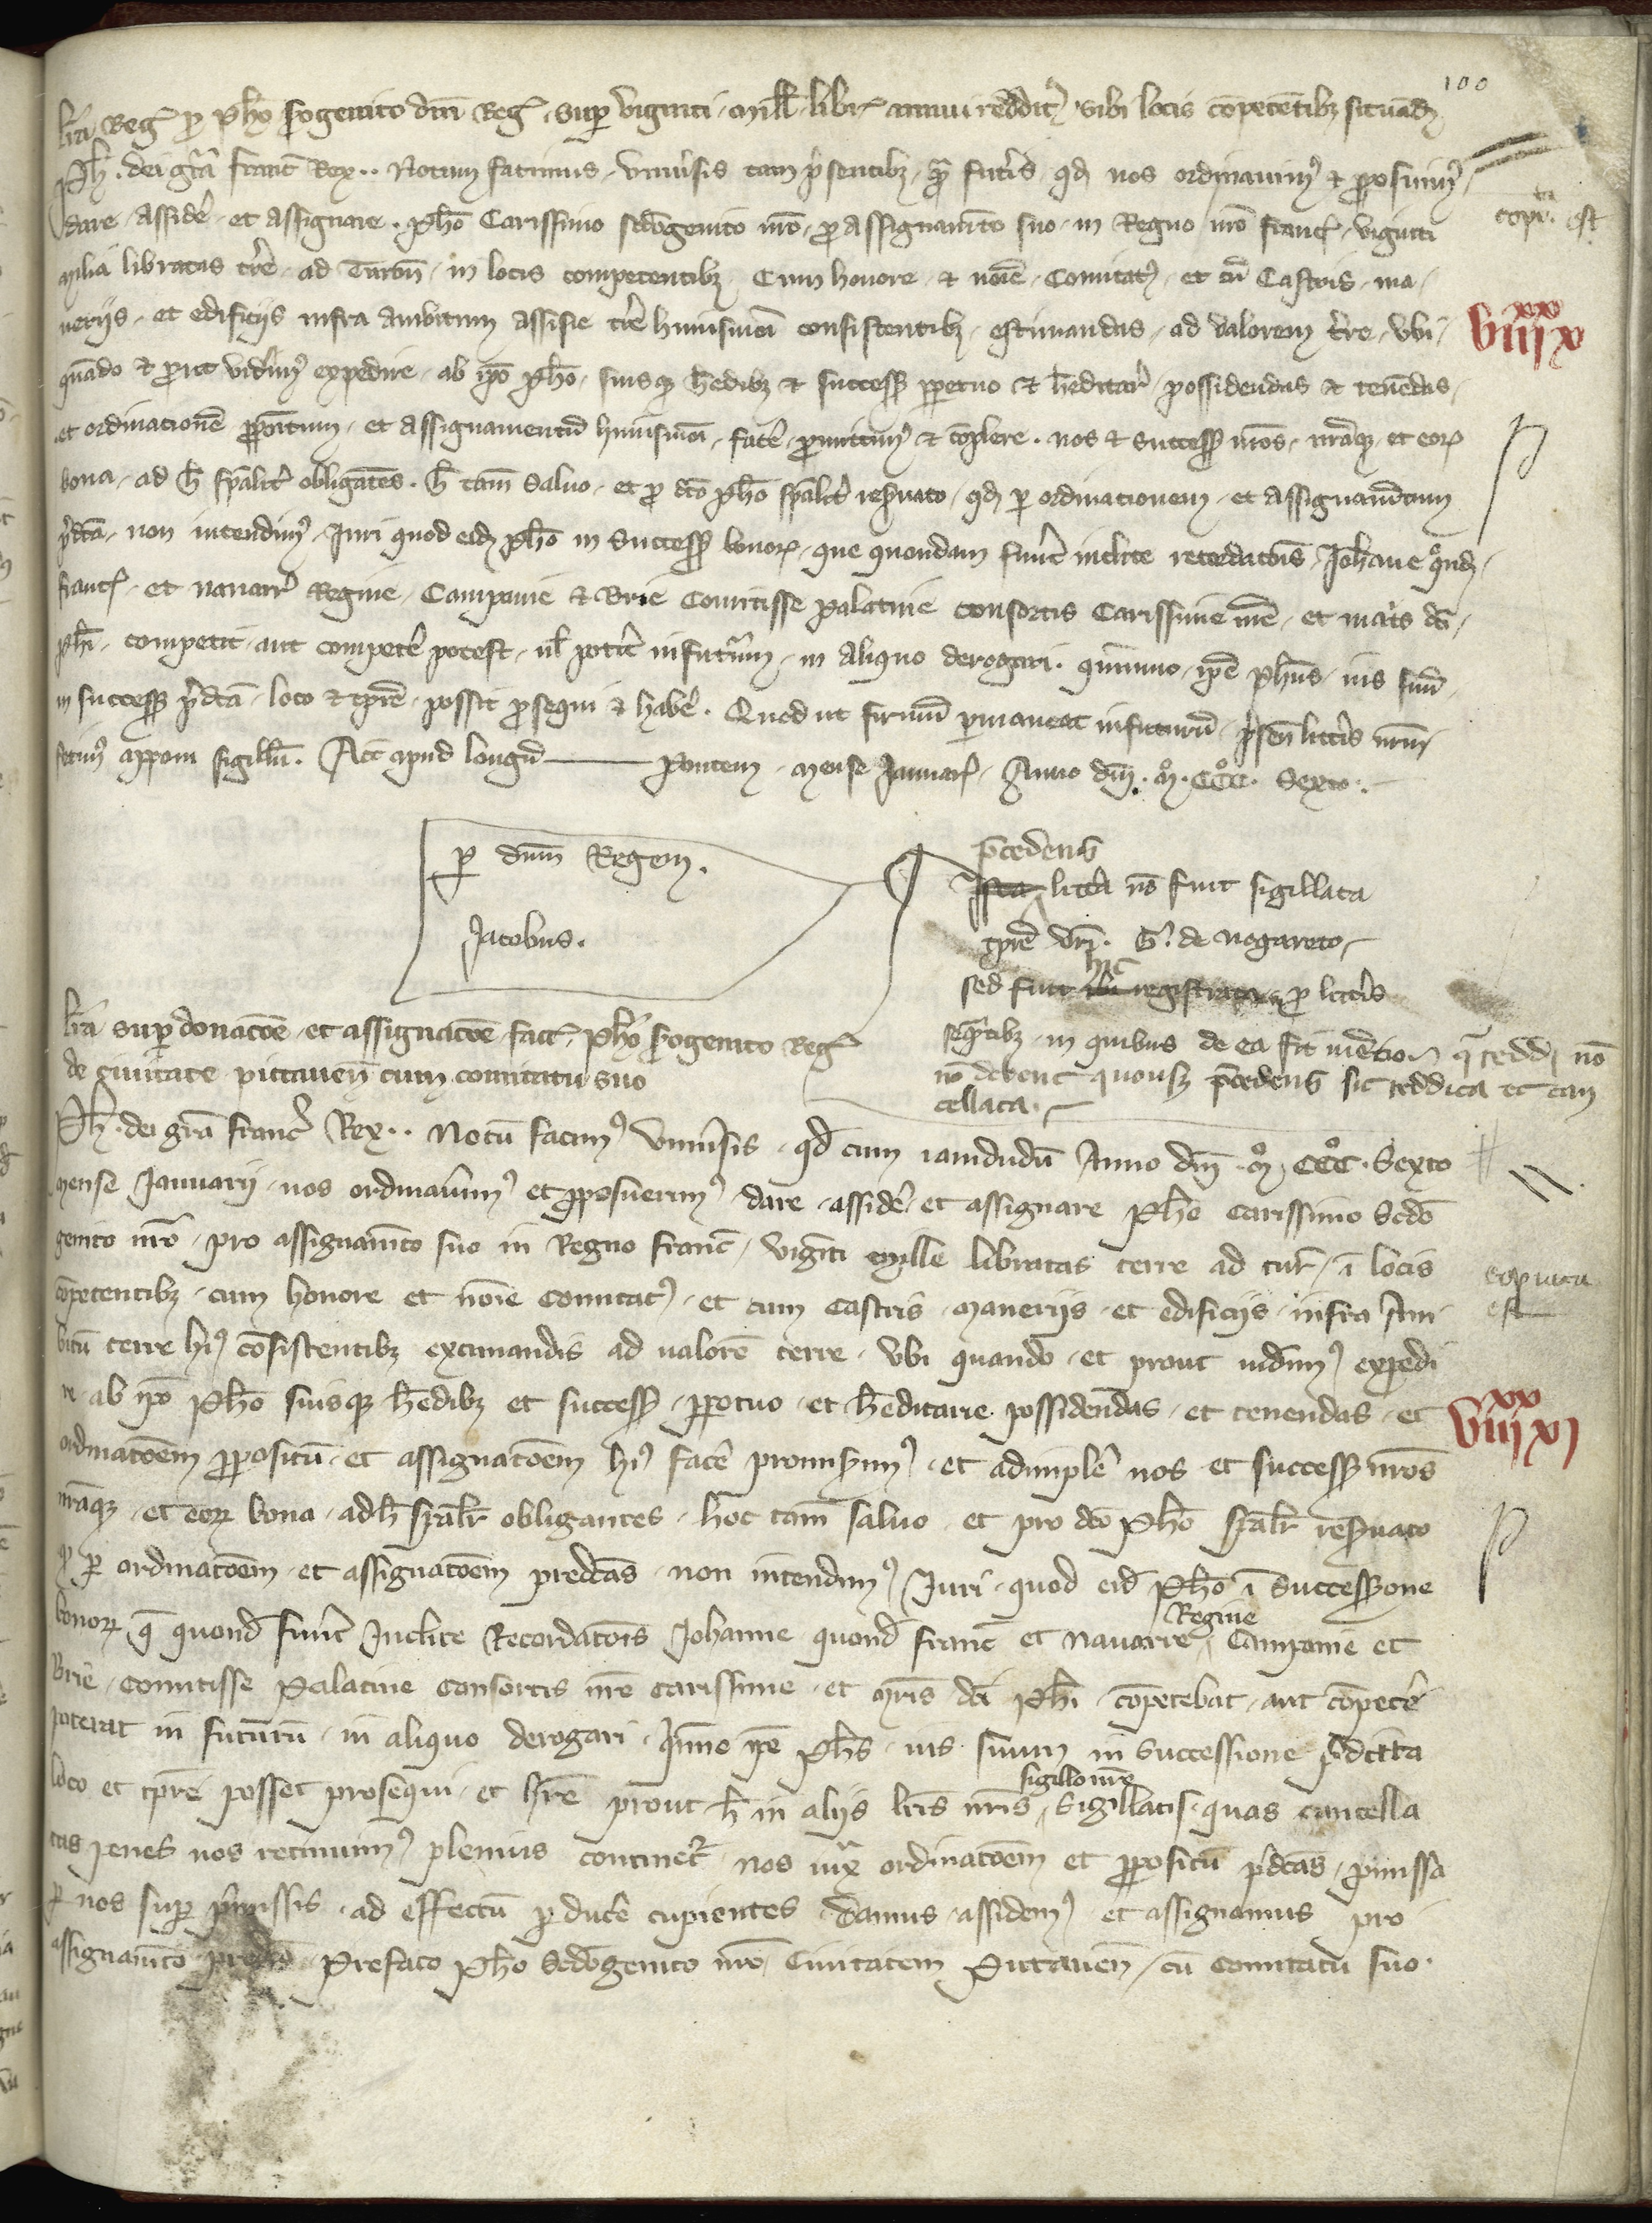 100
lr̄a Reg̃ p̱ Ph̃o s̃ogenito dñi Reg̃. sup̱ viginti. mill̃. libr̃. annui reddit̃. sibi locis cõpetẽtibȝ situand̃.
Ph̃. dei gr̃a franc̃ Rex.. Notum facimus. vniu̾sis tam p̃sentibȝ. q̃m futur̃is. qd̃ nos ordinauim⁹ & p̱posuim⁹.
dare. assider̃e. et assignare. Ph̃o Carissimo scd̃ogenito nr̃o. p̱ assignam̃to suo. in Regno nr̃o franc̃. viginti
milia libratas t̃re. ad Turoñ. in locis competentibȝ. Cum honore. & noĩe. Comitat⁹. et cũ Castris. ma.
neriis. et edificiis infra ambitum assisie t̃re huiusmõi consistentibȝ. estimandas. ad valorem t̃re. vbi.
quãdo & prout vid̾im⁹ expedire. ab ip̃o Ph̃o. suisqȝ h̾edibȝ & success̃ p̱petuo & h̾editar̃. possidendas & tenẽdas.
et ordinacionẽ p̱positum. et assignamentũ huiusmõi. fac̾e. promittim⁹ & cõplere. nos & success̃ nr̃os. nr̃aqȝ. et eorꝝ
bona. ad h̃ sp̃alit̾ obligãtes. h̃ tam̃ saluo. et pro d̃co Ph̃o sp̃alit̾ res̾uato. qd̃ p̱ ordinacionem. et assignam̃tum
p̃dc̃a. non intendim⁹. Iuri quod eid̃ Ph̃o in success̃ bonorꝝ. que quondam fuer̃t inclite recordac̃ois Johanne q̃nd̃.
franc̃. et nauarr̃ Regine. Campanie & Brie Comitisse Palatine consortis Carissime nr̃e. et mat̾is d̃ci.
Ph̃i. competit. aut compet̾e potest. ul̃ pot̾it infutur̃um. in aliquo derogari. quinimo. ip̃e Ph̃us. ius suũ.
in success̃ p̃dc̃a. loco & tp̃re. possit p̱sequi & hab̾e. Quod ut firmũ p̱maneat infuturũ. p̃sentib̃ litt̾is nr̃um
fecim⁹ apponi sigillũ. Act̃ apud longũ —— Pontem. mense Januar̃. Anno dñi. m̊. CCC̊. Sexto.
p̱ dnm̃ Regem.
Jacobus.
p̃cedens
Ista litt̾a nõ fuit sigillata
tp̃re dñi. G. de Nogareto.
hic
sed fuit ibi registrata p̱ litt̾is
seqũtibȝ. in quibus de ea fit mẽtio q̃ reddi nõ
nõ debent quousqȝ p̃cedens sit reddita et can
cellata.
lr̄a sup̱ donac̃oe. et assignac̃oe fact̃. Ph̃o s̃ogenito Reg̃
de ciuitate pictaueñ cum comitatu suo
Ph̃. dei gr̃a franc̃ Rex.. Notũ facim⁹ vniu̾sis. qd̃ cum iamdudũ Anno dñi. m̊. CCC̊. Sexto
mense Januarii. nos ordinauim⁹ et p̱posuerim⁹ dare. assid̾e. et assignare Ph̃o carissimo Scd̃o
genito nr̃o. pro assignam̃to suo in Regno franc̃. viginti mille libratas terre ad tur̃. ĩ locis
cõpetentibȝ. cum honore et noĩe comitat⁹. et cum castris. maneriis. et edificiis. infra Am
bitũ terre hi⁹ cõsistentibȝ extimandis ad ualorẽ terre. vbi quando. et prout uid̾im⁹ expedi
re. ab ip̃o Ph̃o suisqȝ h̾edibȝ et success̃. p̱petuo. et h̾editarie. possidendas. et tenendas. et
ordinac̃oem p̱positũ. et assignac̃oem hi⁹ fac̾e promisim⁹. et adimpl̾e nos et success̃ nr̃os
nr̃aqȝ. et eorꝝ bona. ad h̃ sp̃alr̃ obligantes. hoc tam̃ saluo. et pro d̃co Ph̃o sp̃alr̃ res̾uato
qd̃ p̱ ordinac̃oem. et assignac̃oem predc̃as. non intendim⁹ Iuri. quod eid̃ Ph̃o ĩ Successione
bonorꝝ q̃ quond̃ fuer̃t Inclite Recordac̃ois Johanne quond̃ franc̃ et Nauarre Regine Campanie et
Brie. comitisse Palatine consortis nr̃e carissime. et mr̃is d̃ci Ph̃i. cõpetebat. aut cõpet̾e
poterat in futurũ. in aliquo derogari. Immo ip̃e Ph̃s. ius suum in successione p̃dicta
loco et tp̃re posset prosequi. et hr̃e prout h̃ in aliis lr̃is nr̃is sigillo nr̃o Sigillatis. quas cancella
tas penes nos retinuim⁹ plenius continet̃. Nos iux̃ ordinac̃oem et p̱positũ p̃dc̃as. p̱missa
p̱ nos sup̱ p̃missis. ad effectũ p̱duc̾e cupientes. Damus. assidem⁹ et assignamus pro
assignam̃to predc̃o. Prefato Ph̃o Scd̃ogenito nr̃o Ciuitatem Pictaueñ. cũ comitatu suo.
copiata est
viiixx x
copiata
est
viiixx xi